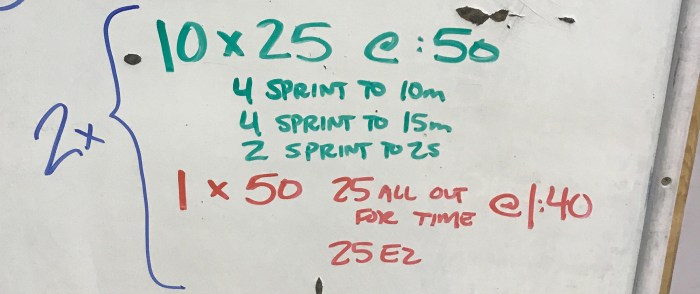 2x
10 x 25 @ :50
4 SPRINT TO 10m
4 SPRINT TO 15m
2 SPRINT TO 25
1 x 50 25 ALL OUT FOR TIME @1:40
25 EZ